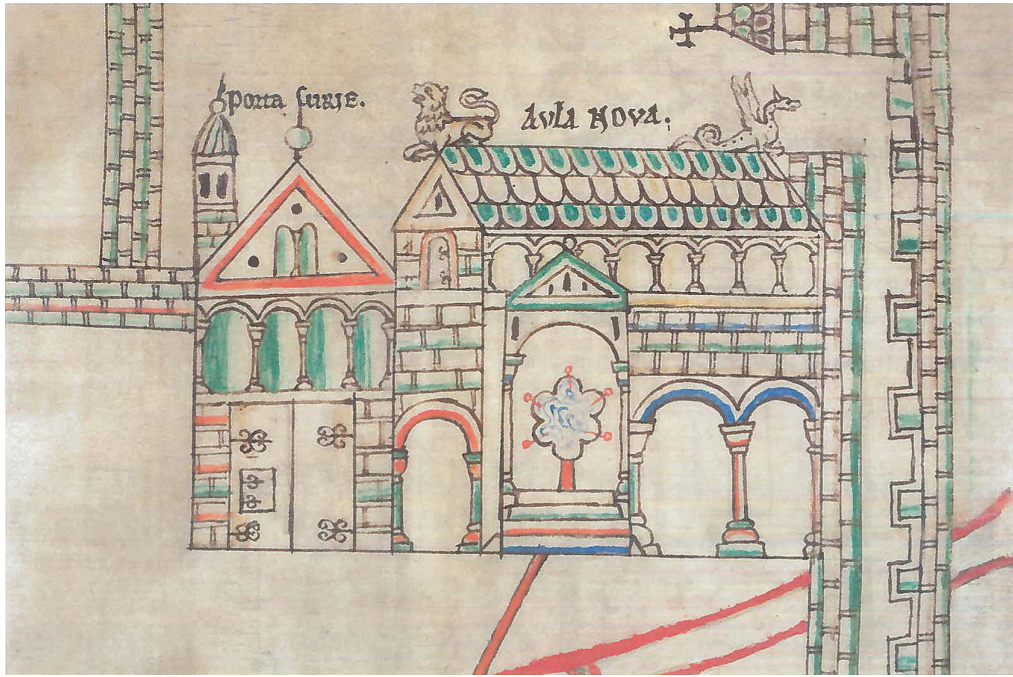 porta curie.
AvlA Nova.